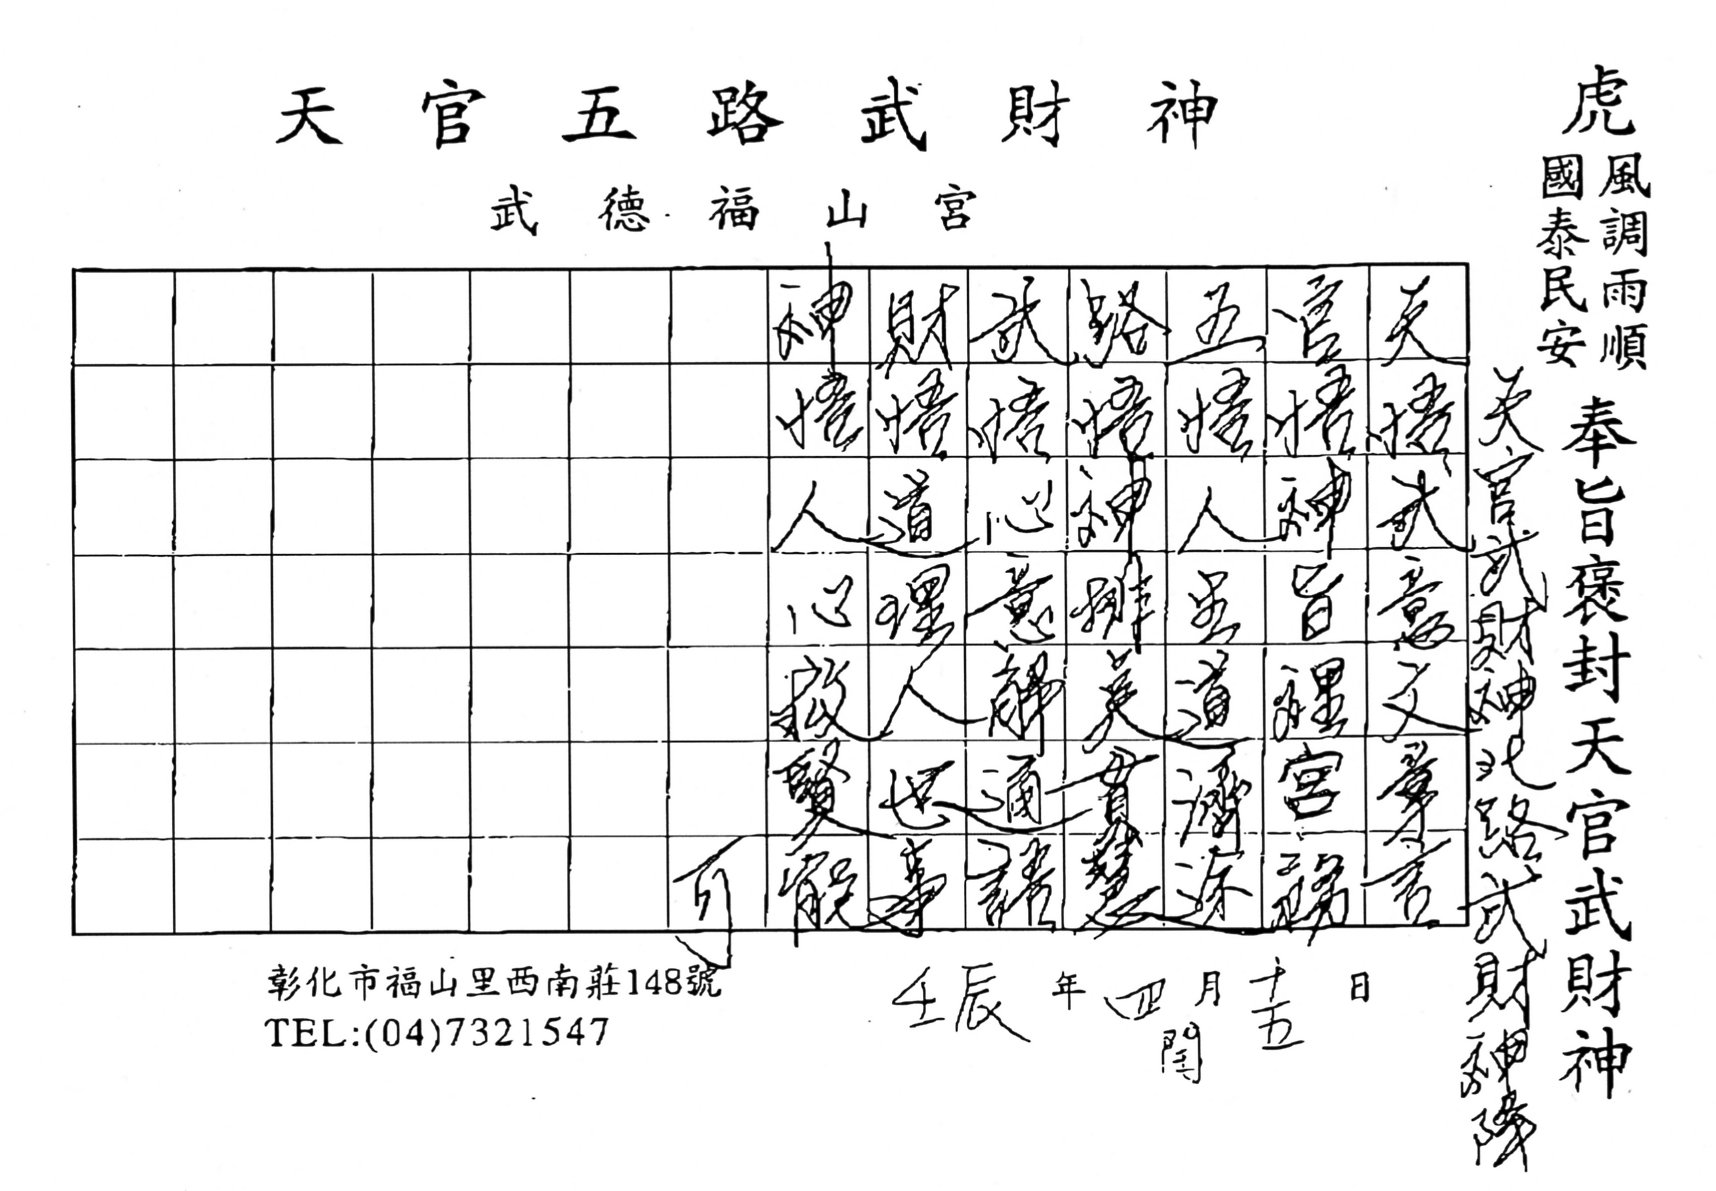 天官五路武財神
武德福山宮
虎
風調雨順
國泰民安
奉旨褒封天官武財神
天官武財神北路武財神降
天悟武意文章言
官悟神旨理宮務
五悟人生道濟
路悟神排美貫慧
武悟心意解通諸
財悟道理人也事
神悟人心救賢能
可
壬辰年四月十五日
閏
彰化市福山里西南莊148號
TEL:(04)7321547